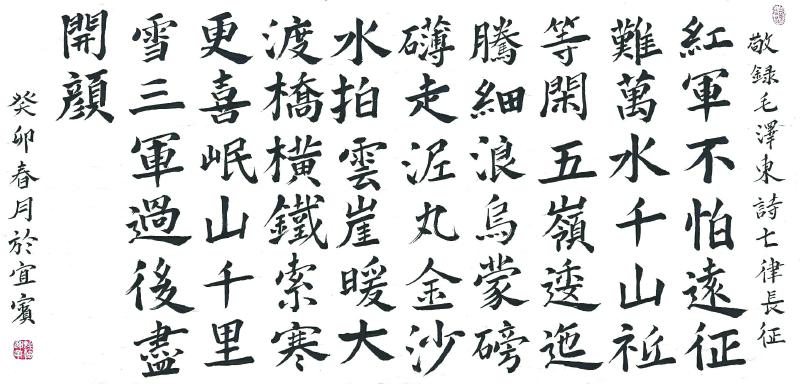 敬録毛澤東詩七律長征
紅軍不怕遠征
難萬水千山祗
等閑五嶺逶迤
騰細浪烏蒙磅
礴走泥丸金沙
水拍雲崖暖大
渡橋橫鐵索寒
更喜岷山千里
雪三軍過後盡
開顔
癸卯春月於宜賓